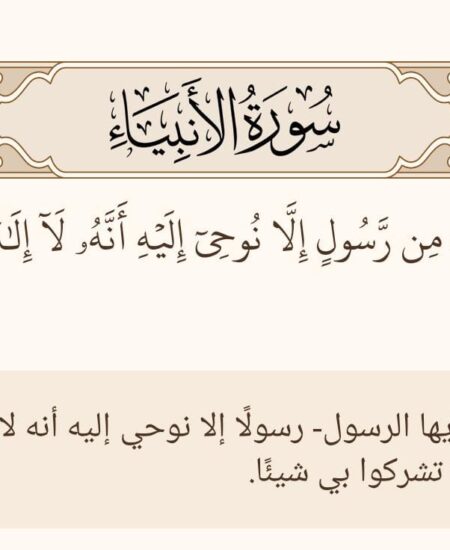 سُورَةُ الأَنبِيَاءِ
مِن رَّسُولٍ إِلَّا نُوحِىٓ إِلَيْهِ أَنَّهُۥ لَآ
يها الرسول- رسولًا إلا نوحي إليه أنه لا
تشركوا بي شيئًا.